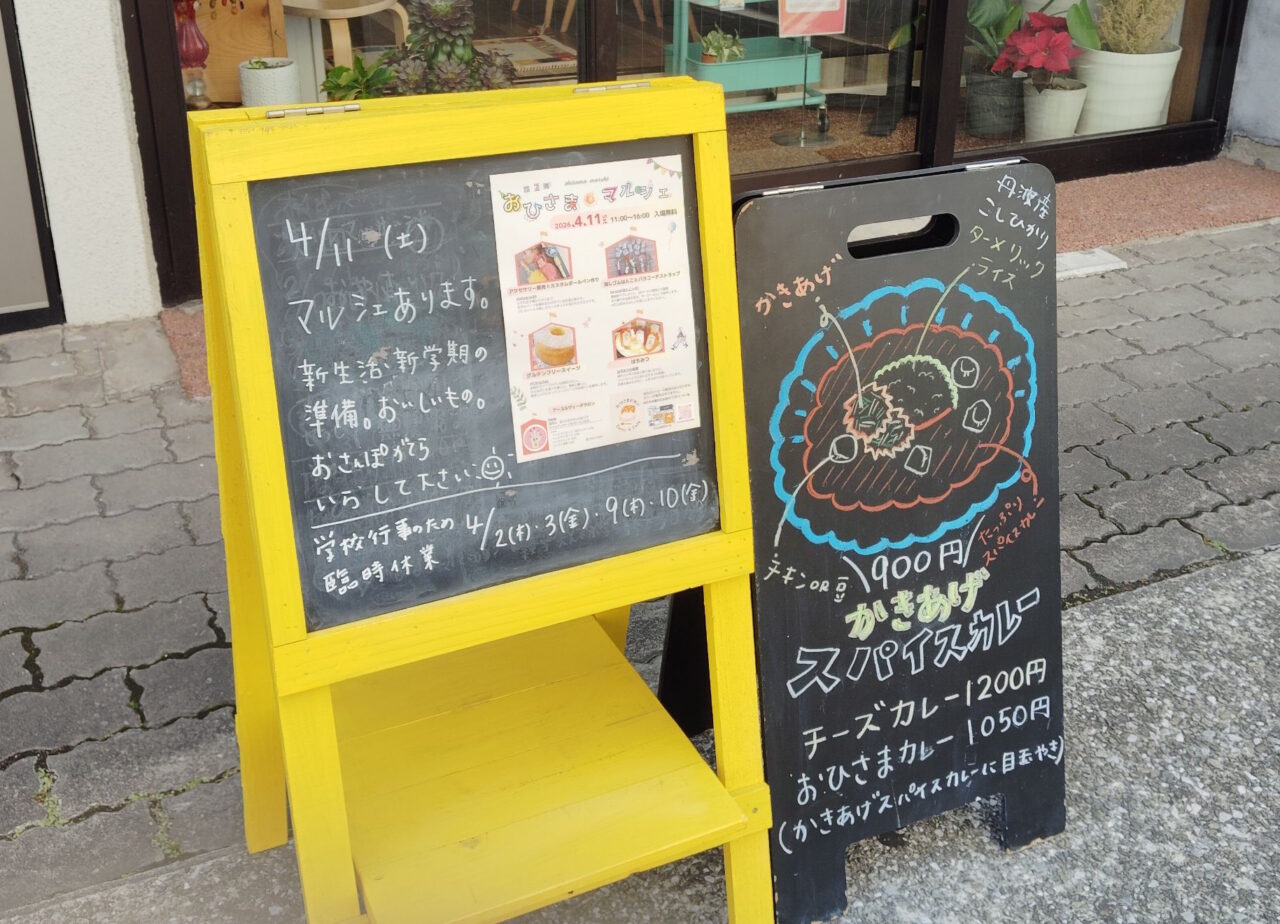 4/11 (土)
マルシェあります。
新生活・新学期の
準備。おいしいもの。
おさんぽがてら
いらして下さい
学校行事のため 4/2(木)・3(金)・9(木)・10(金)
臨時休業
おひさまマルシェ
2026.4.11 11:00〜16:00 入場無料
グルテンフリースイーツ
はちみつ
丹波産
こしひかり
ターメリック
ライス
かきあげ
チキンOR豆
たっぷり
スパイスカレー
900円
かきあげ
スパイスカレー
チーズカレー1200円
おひさまカレー1050円
(かきあげスパイスカレーに目玉やき)